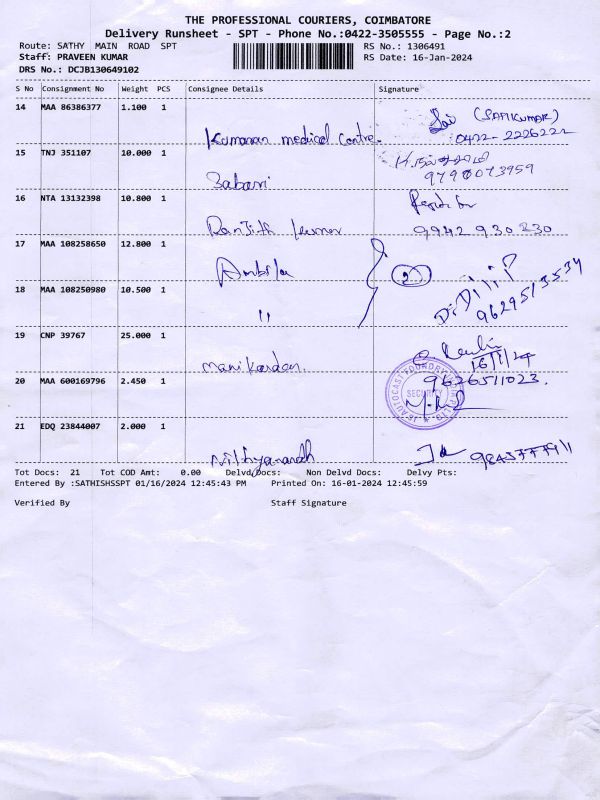 THE PROFESSIONAL COURIERS, COIMBATORE
Delivery Runsheet - SPT - Phone No.:0422-3505555 - Page No.:2
Route: SATHY MAIN ROAD SPT
RS No.: 1306491
Staff: PRAVEEN KUMAR
RS Date: 16-Jan-2024
DRS No.: DCJB130649102
S No Consignment No Weight PCS Consignee Details Signature
14 MAA 86386377 1.100 1
Kumaran medical Centre. Sai (SASIKUMAR)
0422-2226222
15 TNJ 351107 10.000 1
Sabari 9790073959
16 NTA 13132398 10.800 1
Ranjith kumar 9942930230
17 MAA 108258650 12.800 1
Ambika 2
18 MAA 108250980 10.500 1
" 9629513534
19 CNP 39767 25.000 1
Manikandan. 16/1/24
20 MAA 600169796 2.450 1
9626511023.
SECURITY
21 EDQ 23844007 2.000 1
Nithyanandh
Tot Docs: 21 Tot COD Amt: 0.00 Delvd Docs: Non Delvd Docs: Delvy Pts:
Entered By :SATHISHSSPT 01/16/2024 12:45:43 PM Printed On: 16-01-2024 12:45:59
Verified By Staff Signature